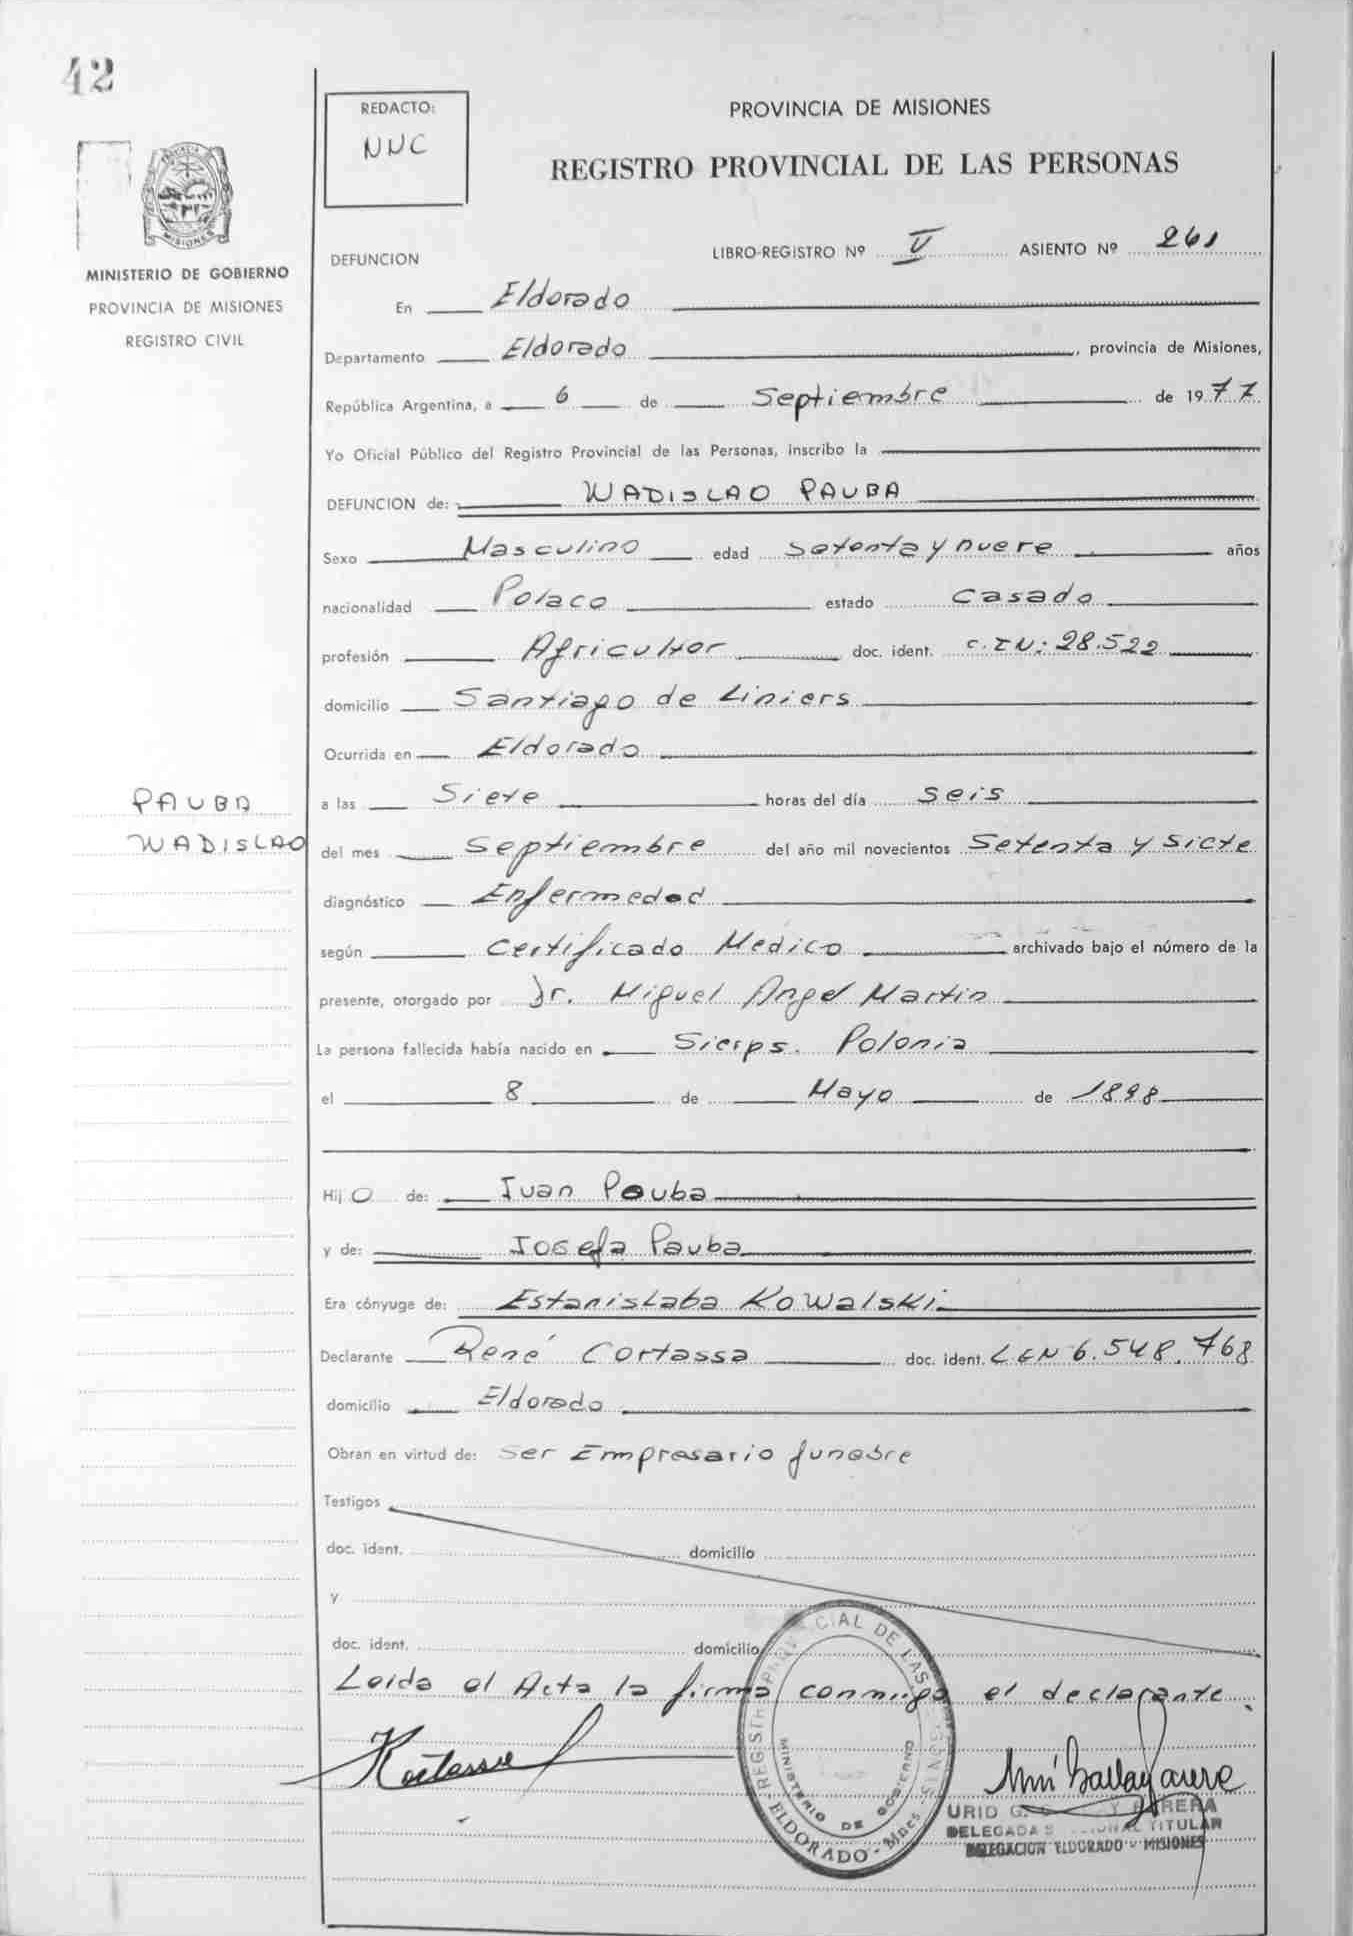 42
REDACTO:
NNC
PROVINCIA DE MISIONES
REGISTRO PROVINCIAL DE LAS PERSONAS
MISIONES
MINISTERIO DE GOBIERNO
PROVINCIA DE MISIONES
REGISTRO CIVIL
DEFUNCION LIBRO-REGISTRO Nº V ASIENTO Nº 261
En Eldorado
Departamento Eldorado, provincia de Misiones,
República Argentina, a 6 de Septiembre de 1977
Yo Oficial Público del Registro Provincial de las Personas, inscribo la
DEFUNCION de: WADISLAO PAUBA
Sexo Masculino edad Setenta y nueve años
nacionalidad Polaco estado Casado
profesión Agricultor doc. ident. C.IN: 28.522
domicilio Santiago de Liniers
Ocurrida en Eldorado
PAUBA
WADISLAO
a las Siete horas del día Seis
del mes Septiembre del año mil novecientos Setenta y Siete
diagnóstico Enfermedad
según Certificado Medico archivado bajo el número de la
presente, otorgado por Dr. Miguel Angel Martin
La persona fallecida había nacido en Sierps. Polonia
el 8 de Mayo de 1898
Hijo de: Juan Pauba
y de: Josefa Pauba
Era cónyuge de: Estanislaba Kowalski
Declarante René Cortassa doc. ident. LEN 6.548.768
domicilio Eldorado
Obran en virtud de: Ser Empresario funebre
Testigos
doc. ident. domicilio
y
doc. ident. domicilio
Leida el Acta la firma conmigo el declarante.
REGISTRO PROVINCIAL DE LAS PERSONAS
MINISTERIO DE GOBIERNO
ELDORADO - Mnes
DELEGADA TITULAR
DELEGACION ELDORADO - MISIONES